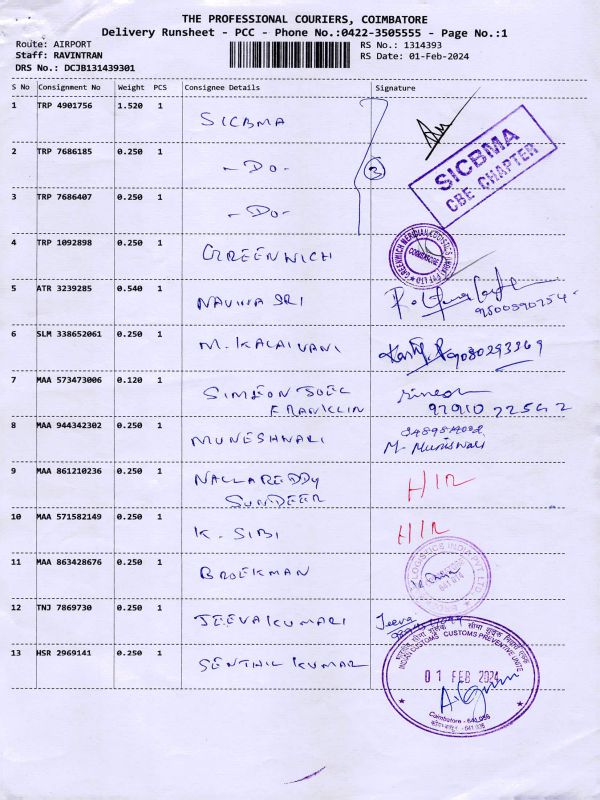 THE PROFESSIONAL COURIERS, COIMBATORE
Delivery Runsheet - PCC - Phone No.:0422-3505555 - Page No.:1
Route: AIRPORT RS No.: 1314393
Staff: RAVINTRAN RS Date: 01-Feb-2024
DRS No.: DCJB131439301
S No Consignment No Weight PCS Consignee Details Signature
1 TRP 4901756 1.520 1 SICBMA
2 TRP 7686185 0.250 1 -DO-
3
SICBMA
CBE CHAPTER
3 TRP 7686407 0.250 1 -DO-
4 TRP 1092898 0.250 1 GREENWICH
COIMBATORE
5 ATR 3239285 0.540 1 NAVINA SRI
6 SLM 338652061 0.250 1 M. KALAIVANI 9080293369
7 MAA 573473006 0.120 1 SIMEON JOEL
FRANKLIN
8 MAA 944342302 0.250 1 MUNESHWARI
M. Muniswari
9 MAA 861210236 0.250 1 NALLAREDDY
SUNDEER
10 MAA 571582149 0.250 1 K. SIBI
11 MAA 863428676 0.250 1 BROEKMAN
LOGISTICS INDIA PVT LTD
12 TNJ 7869730 0.250 1 JEEVAKUMARI Jeeva
13 HSR 2969141 0.250 1 SENTHIL KUMAR
INDIAN CUSTOMS CUSTOMS PREVENTIVE UNIT
01 FEB 2024
Coimbatore